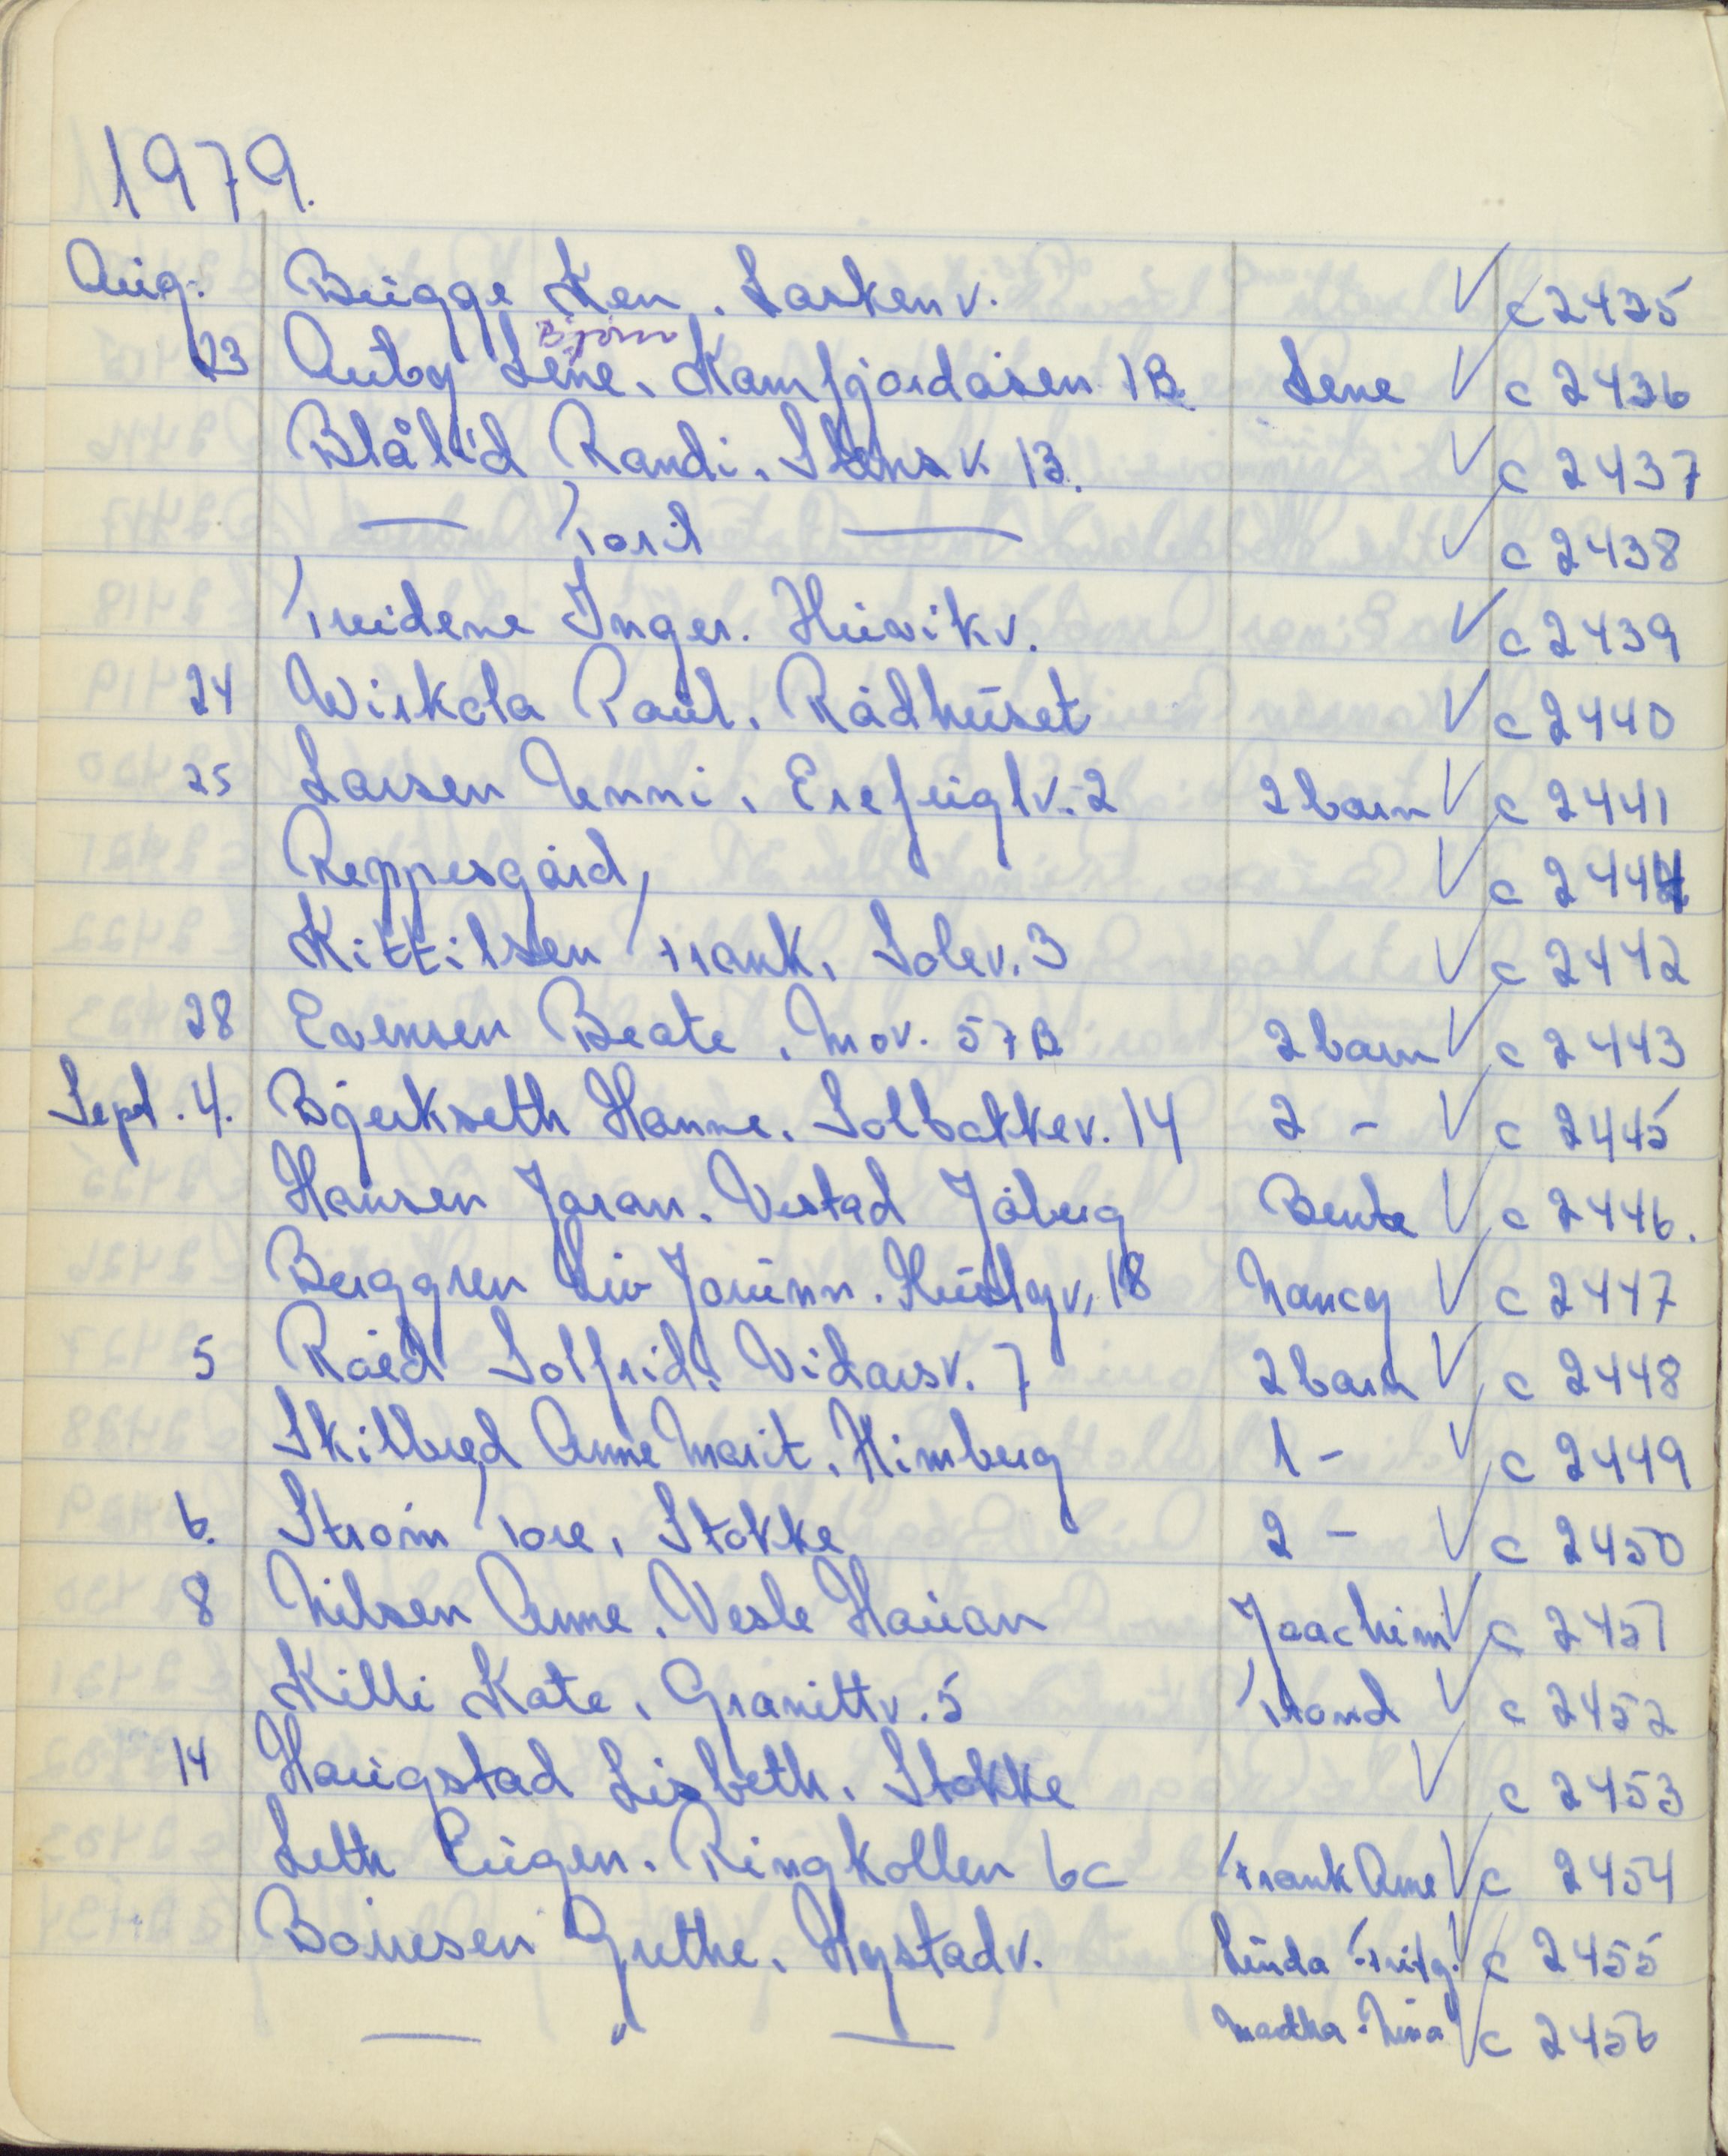 1979.
Aug. Bugge Ken. Larkenv. ✓ c 2435
Bjørn
23 Auby Lene. Kamfjordåsen 1B Lene ✓ c 2436
Blålid Randi. 13. ✓ c 2437
— Toril — ✓ c 2438
Tveidene Inger. Huvikv. ✓ c 2439
24 Wirkola Paul. Rådhuset ✓ c 2440
25 Larsen Unni. Erefuglv. 2 2 barn ✓ c 2441
Reppesgård, ✓ c 2444
Kittilsen Frank. Solev. 3 ✓ c 2442
28 Evensen Beate. Mov. 57B 2 barn ✓ c 2443
Sept. 4. Bjerkseth Hanne. Solbakkev. 14 2 - ✓ c 2445
Hansen Jøran. Vestad Jåberg Bente ✓ c 2446.
Berggren Liv Jorunn. 18 Nancy ✓ c 2447
5 Råed Solfrid. Vidarsv. 7 2 barn ✓ c 2448
Skilbred Anne Marit. Himberg 1 - ✓ c 2449
6. Strøm Tore. Stokke 2 - ✓ c 2450
8 Nilsen Anne. Vesle Hauan Joachim ✓ c 2451
Killi Kate. Granittv. 5 Trond ✓ c 2452
14 Haugstad Lisbeth. Stokke ✓ c 2453
Leth Eugen. Ringkollen 6c Frank Arne ✓ c 2454
Bøiesen Grethe. Hystadv. Linda ✓ c 2455
— " — Martha-Nina ✓ c 2456